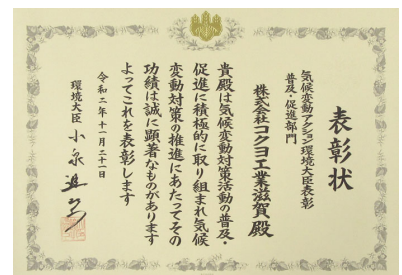 表彰状
気候変動アクション環境大臣表彰
普及・促進部門
株式会社コクヨ工業滋賀殿
貴殿は気候変動対策活動の普及・
促進に積極的に取り組まれ気候
変動対策の推進にあたってその
功績は誠に顕著なものがあります
よってこれを表彰します
令和二年十一月二十一日
環境大臣 小泉進次郎